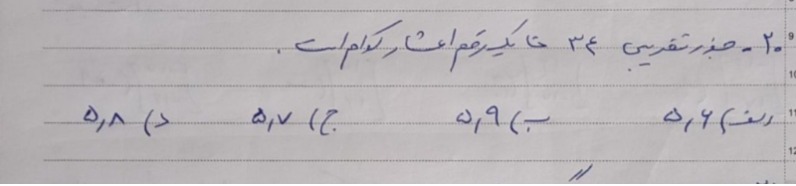 ۲۰. جذر تقریبی ۳۴ تا یک رقم اعشار کدام است.
الف) ۵,۶ ب) ۵,۹ ج) ۵,۷ د) ۵,۸
9
10
11
12